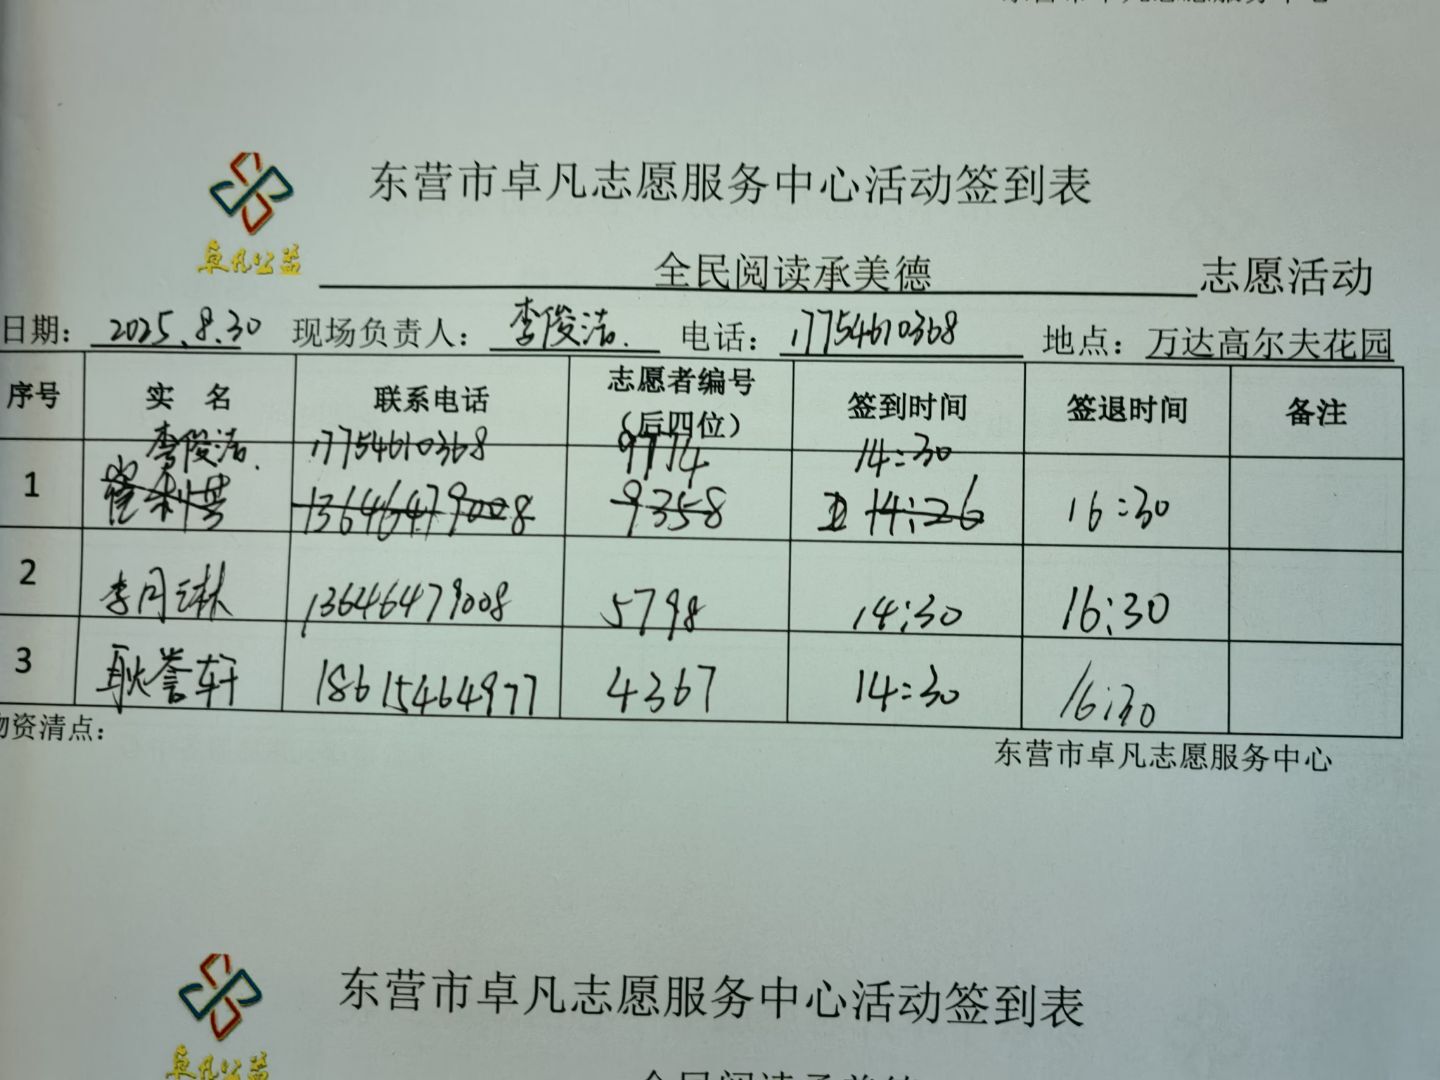 东营市卓凡志愿服务中心
东营市卓凡志愿服务中心活动签到表
卓凡公益
全民阅读承美德 志愿活动
日期: 2025.8.30 现场负责人: 李俊洁. 电话: 17754610368 地点: 万达高尔夫花园
序号 实 名 联系电话 志愿者编号（后四位） 签到时间 签退时间 备注
李俊洁. 17754610368 9774 14:30
1 13646479008 9358 14:26 16:30
2 李月琳 13646479008 5798 14:30 16:30
3 耿誉轩 18615464977 4367 14:30 16:30
物资清点:
东营市卓凡志愿服务中心
东营市卓凡志愿服务中心活动签到表
卓凡公益
全民阅读承美德